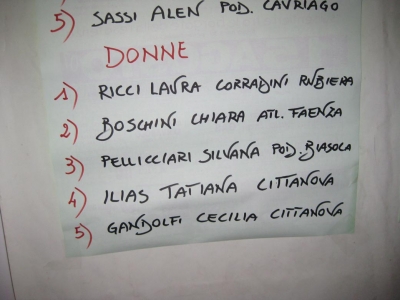 5) SASSI ALEN POD. CAVRIAGO
DONNE
1) RICCI LAURA CORRADINI RUBIERA
2) BOSCHINI CHIARA ATL. FAENZA
3) PELLICCIARI SILVANA POD. BIASOLA
4) ILIAS TATIANA CITTANOVA
5) GANDOLFI CECILIA CITTANOVA